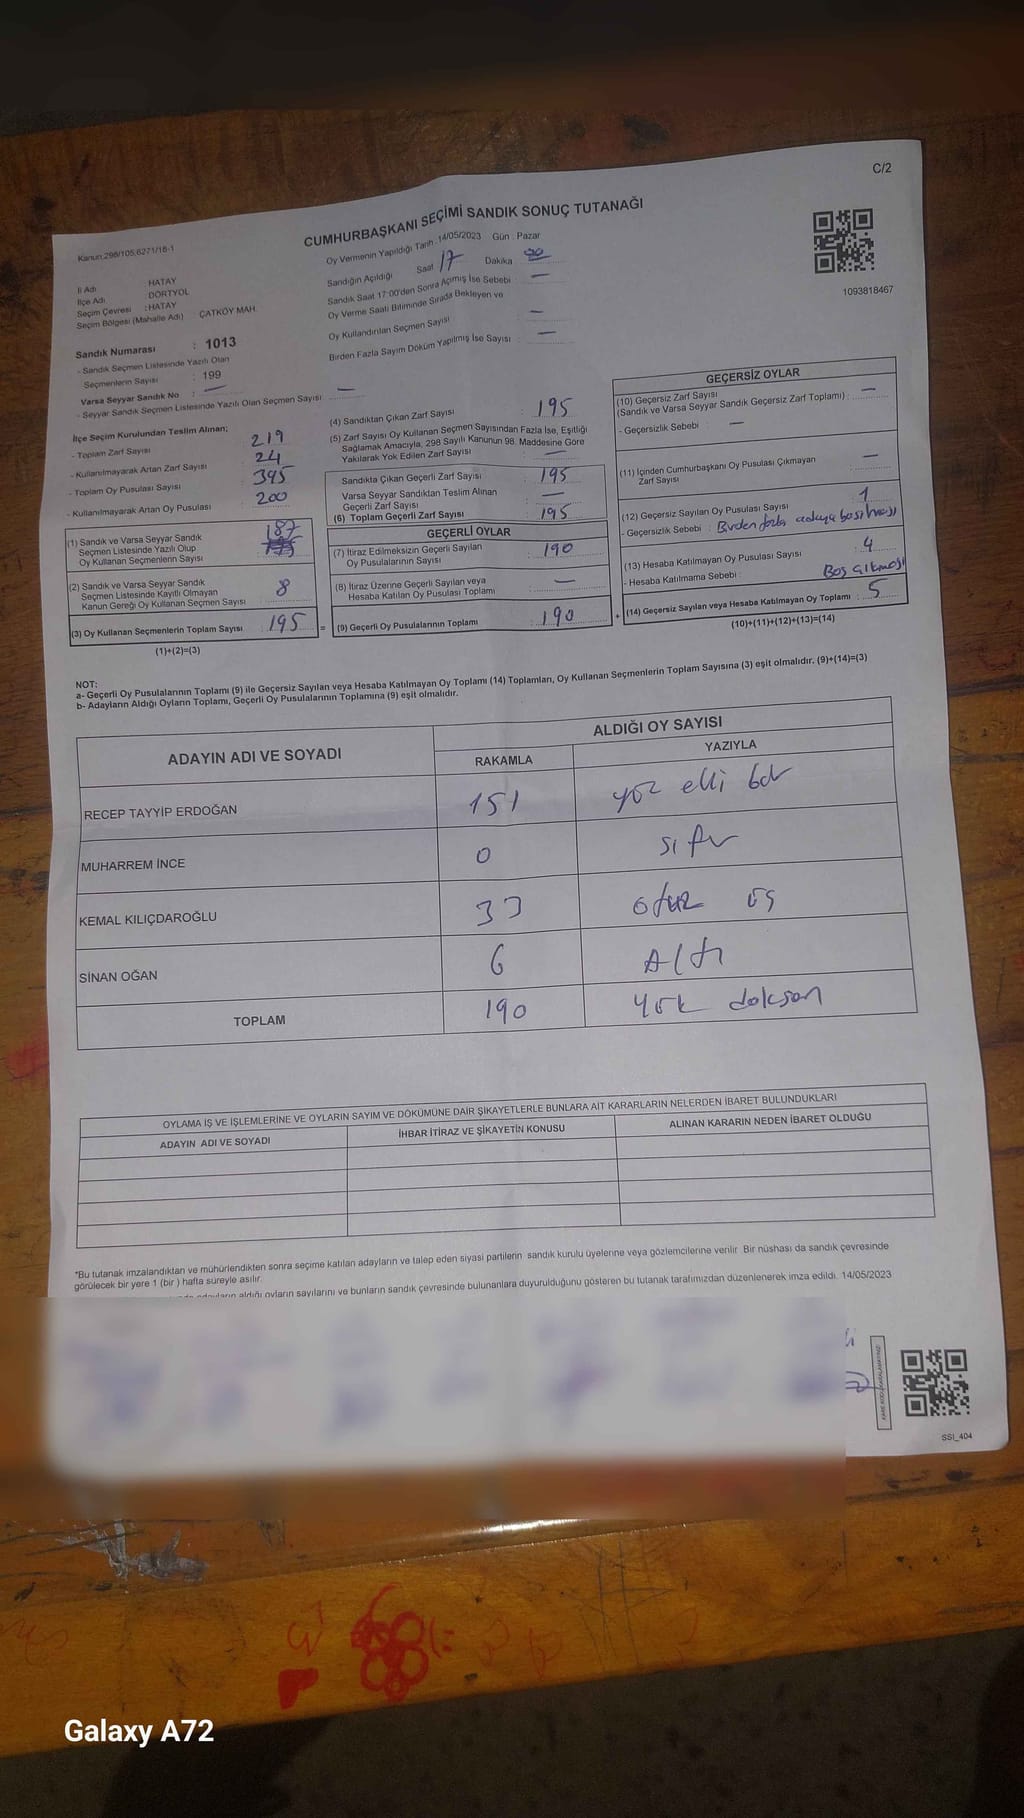 C/2
CUMHURBAŞKANI SEÇİMİ SANDIK SONUÇ TUTANAĞI
Kanun:298/105,6271/18-1
Oy Vermenin Yapıldığı Tarih : 14/05/2023 Gün : Pazar
Sandığın Açıldığı Saat 17 Dakika 00
Sandık Saat 17:00'den Sonra Açmış İse Sebebi —
Oy Verme Saati Bitiminde Sırada Bekleyen ve
Oy Kullandırılan Seçmen Sayısı —
Birden Fazla Sayım Döküm Yapılmış İse Sayısı : —
1093818467
İl Adı HATAY
İlçe Adı DÖRTYOL
Seçim Çevresi : HATAY
Seçim Bölgesi (Mahalle Adı) ÇATKÖY MAH.
Sandık Numarası : 1013
- Sandık Seçmen Listesinde Yazılı Olan
Seçmenlerin Sayısı : 199
Varsa Seyyar Sandık No : —
- Seyyar Sandık Seçmen Listesinde Yazılı Olan Seçmen Sayısı : —
İlçe Seçim Kurulundan Teslim Alınan;
- Toplam Zarf Sayısı 219
- Kullanılmayarak Artan Zarf Sayısı 24
- Toplam Oy Pusulası Sayısı 395
- Kullanılmayarak Artan Oy Pusulası 200
(1) Sandık ve Varsa Seyyar Sandık
Seçmen Listesinde Yazılı Olup
Oy Kullanan Seçmenlerin Sayısı 187
(2) Sandık ve Varsa Seyyar Sandık
Seçmen Listesinde Kayıtlı Olmayan
Kanun Gereği Oy Kullanan Seçmen Sayısı : 8
(3) Oy Kullanan Seçmenlerin Toplam Sayısı : 195 =
(1)+(2)=(3)
(4) Sandıktan Çıkan Zarf Sayısı : 195
(5) Zarf Sayısı Oy Kullanan Seçmen Sayısından Fazla İse, Eşitliği
Sağlamak Amacıyla, 298 Sayılı Kanunun 98. Maddesine Göre
Yakılarak Yok Edilen Zarf Sayısı —
Sandıkta Çıkan Geçerli Zarf Sayısı : 195
Varsa Seyyar Sandıktan Teslim Alınan
Geçerli Zarf Sayısı : —
(6) Toplam Geçerli Zarf Sayısı : 195
GEÇERLİ OYLAR
(7) İtiraz Edilmeksizin Geçerli Sayılan
Oy Pusulalarının Sayısı : 190
(8) İtiraz Üzerine Geçerli Sayılan veya
Hesaba Katılan Oy Pusulası Toplamı : —
(9) Geçerli Oy Pusulalarının Toplamı : 190 +
GEÇERSİZ OYLAR
(10) Geçersiz Zarf Sayısı
(Sandık ve Varsa Seyyar Sandık Geçersiz Zarf Toplamı) : —
- Geçersizlik Sebebi : —
(11) İçinden Cumhurbaşkanı Oy Pusulası Çıkmayan
Zarf Sayısı : —
(12) Geçersiz Sayılan Oy Pusulası Sayısı : 1
- Geçersizlik Sebebi : Birden fazla adaya basılması
(13) Hesaba Katılmayan Oy Pusulası Sayısı : 4
- Hesaba Katılmama Sebebi : Boş çıkması
(14) Geçersiz Sayılan veya Hesaba Katılmayan Oy Toplamı : 5
(10)+(11)+(12)+(13)=(14)
NOT:
a- Geçerli Oy Pusulalarının Toplamı (9) ile Geçersiz Sayılan veya Hesaba Katılmayan Oy Toplamı (14) Toplamları, Oy Kullanan Seçmenlerin Toplam Sayısına (3) eşit olmalıdır. (9)+(14)=(3)
b- Adayların Aldığı Oyların Toplamı, Geçerli Oy Pusulalarının Toplamına (9) eşit olmalıdır.
ADAYIN ADI VE SOYADI
ALDIĞI OY SAYISI
RAKAMLA
YAZIYLA
RECEP TAYYİP ERDOĞAN 151 yüz elli bir
MUHARREM İNCE 0 sıfır
KEMAL KILIÇDAROĞLU 33 otuz üç
SİNAN OĞAN 6 Altı
TOPLAM 190 yüz doksan
OYLAMA İŞ VE İŞLEMLERİNE VE OYLARIN SAYIM VE DÖKÜMÜNE DAİR ŞİKAYETLERLE BUNLARA AİT KARARLARIN NELERDEN İBARET BULUNDUKLARI
ADAYIN ADI VE SOYADI
İHBAR İTİRAZ VE ŞİKAYETİN KONUSU
ALINAN KARARIN NEDEN İBARET OLDUĞU
*Bu tutanak imzalandıktan ve mühürlendikten sonra seçime katılan adayların ve talep eden siyasi partilerin sandık kurulu üyelerine veya gözlemcilerine verilir. Bir nüshası da sandık çevresinde
görülecek bir yere 1 (bir ) hafta süreyle asılır.
adayların aldığı oyların sayılarını ve bunların sandık çevresinde bulunanlara duyurulduğunu gösteren bu tutanak tarafımızdan düzenlenerek imza edildi. 14/05/2023
SSI_404
Galaxy A72